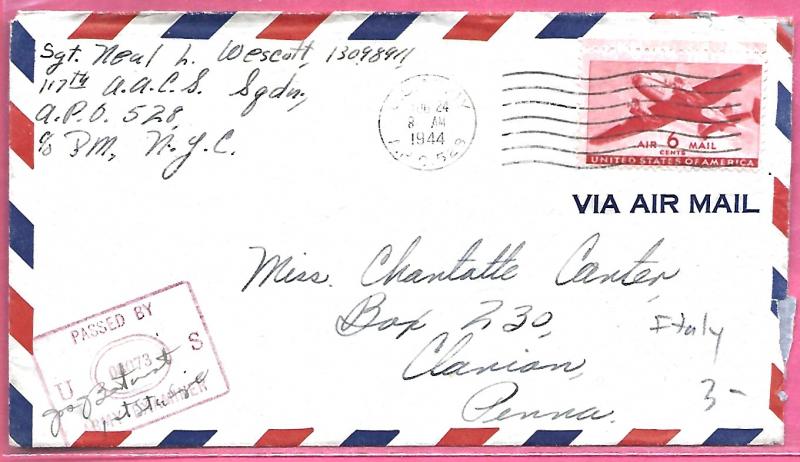 Sgt. Neal L. Wescott, 13098911
117th A.A.C.S. Sqdn,
A.P.O. 528,
c/o PM, N.Y.C.
24
8 AM
1944
AIR 6 MAIL
CENTS
UNITED STATES OF AMERICA
VIA AIR MAIL
Miss. Charlotte Canter,
Box 230,
Clarion,
Penna.
Italy
3-
PASSED BY
U S
ARMY EXAMINER